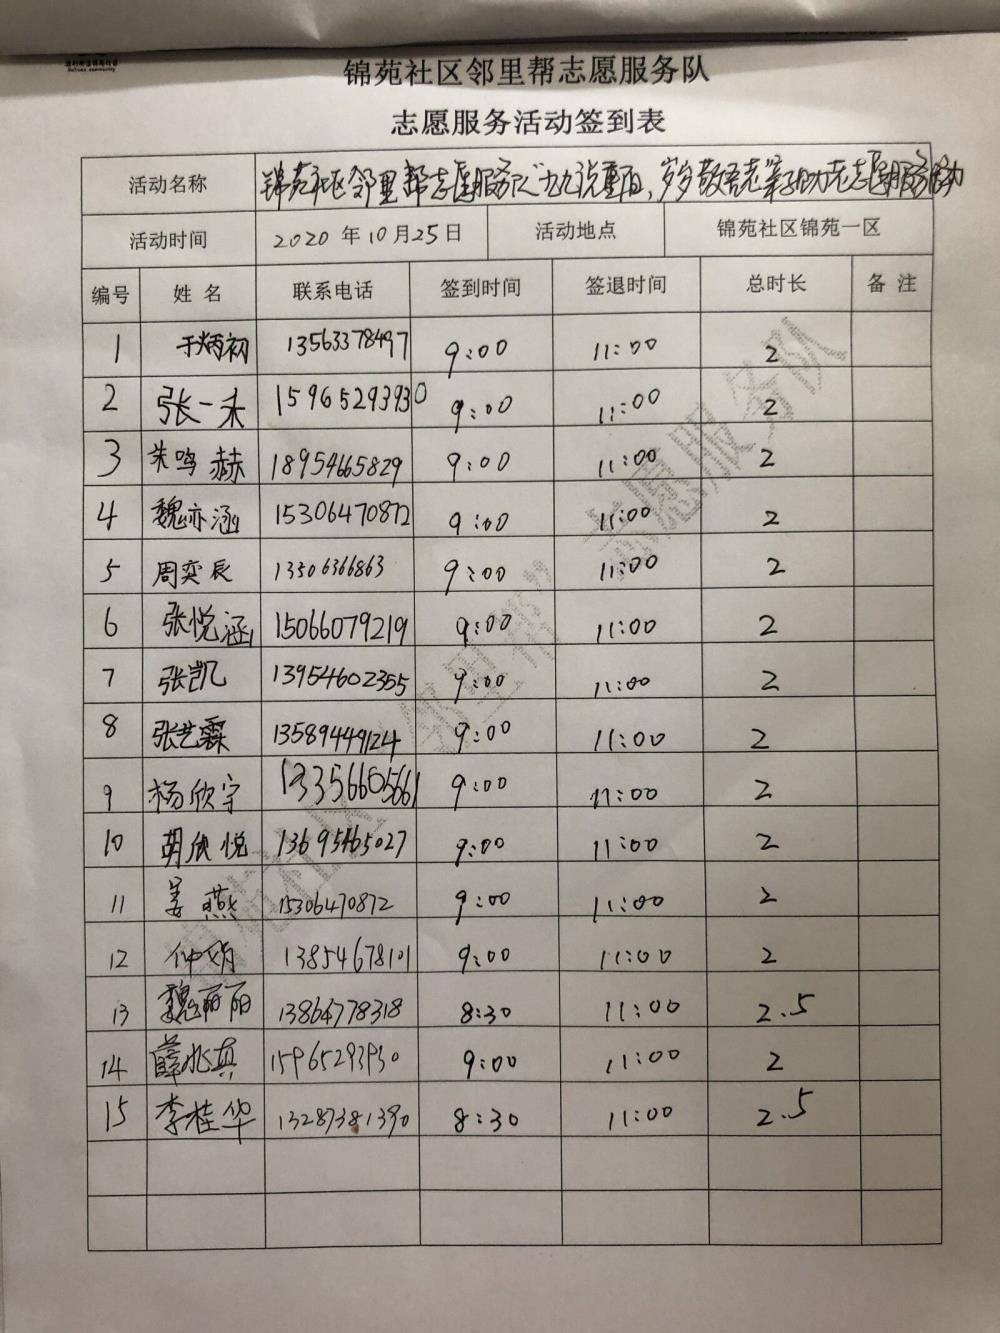 锦苑社区邻里帮志愿服务队
志愿服务活动签到表
活动名称 锦苑社区邻里帮志愿服务队“九九说重阳,岁岁敬吾老”亲子助老志愿服务活动
活动时间 2020年10月25日 活动地点 锦苑社区锦苑一区
编号 姓名 联系电话 签到时间 签退时间 总时长 备注
1 于炳初 13563378497 9:00 11:00 2
2 张一未 15965293930 9:00 11:00 2
3 朱鸣赫 18954665829 9:00 11:00 2
4 魏亦涵 15306470872 9:00 11:00 2
5 周奕辰 13506366863 9:00 11:00 2
6 张悦涵 15066079219 9:00 11:00 2
7 张凯 13954602355 9:00 11:00 2
8 张艺霖 13589449124 9:00 11:00 2
9 杨欣宇 13356605661 9:00 11:00 2
10 胡欣悦 13695465027 9:00 11:00 2
11 姜燕 15306470872 9:00 11:00 2
12 仲娟 13854678101 9:00 11:00 2
13 魏丽丽 13864778318 8:30 11:00 2.5
14 薛兆真 15965293930 9:00 11:00 2
15 李桂华 13287381390 8:30 11:00 2.5
锦苑社区“邻里帮”志愿服务队